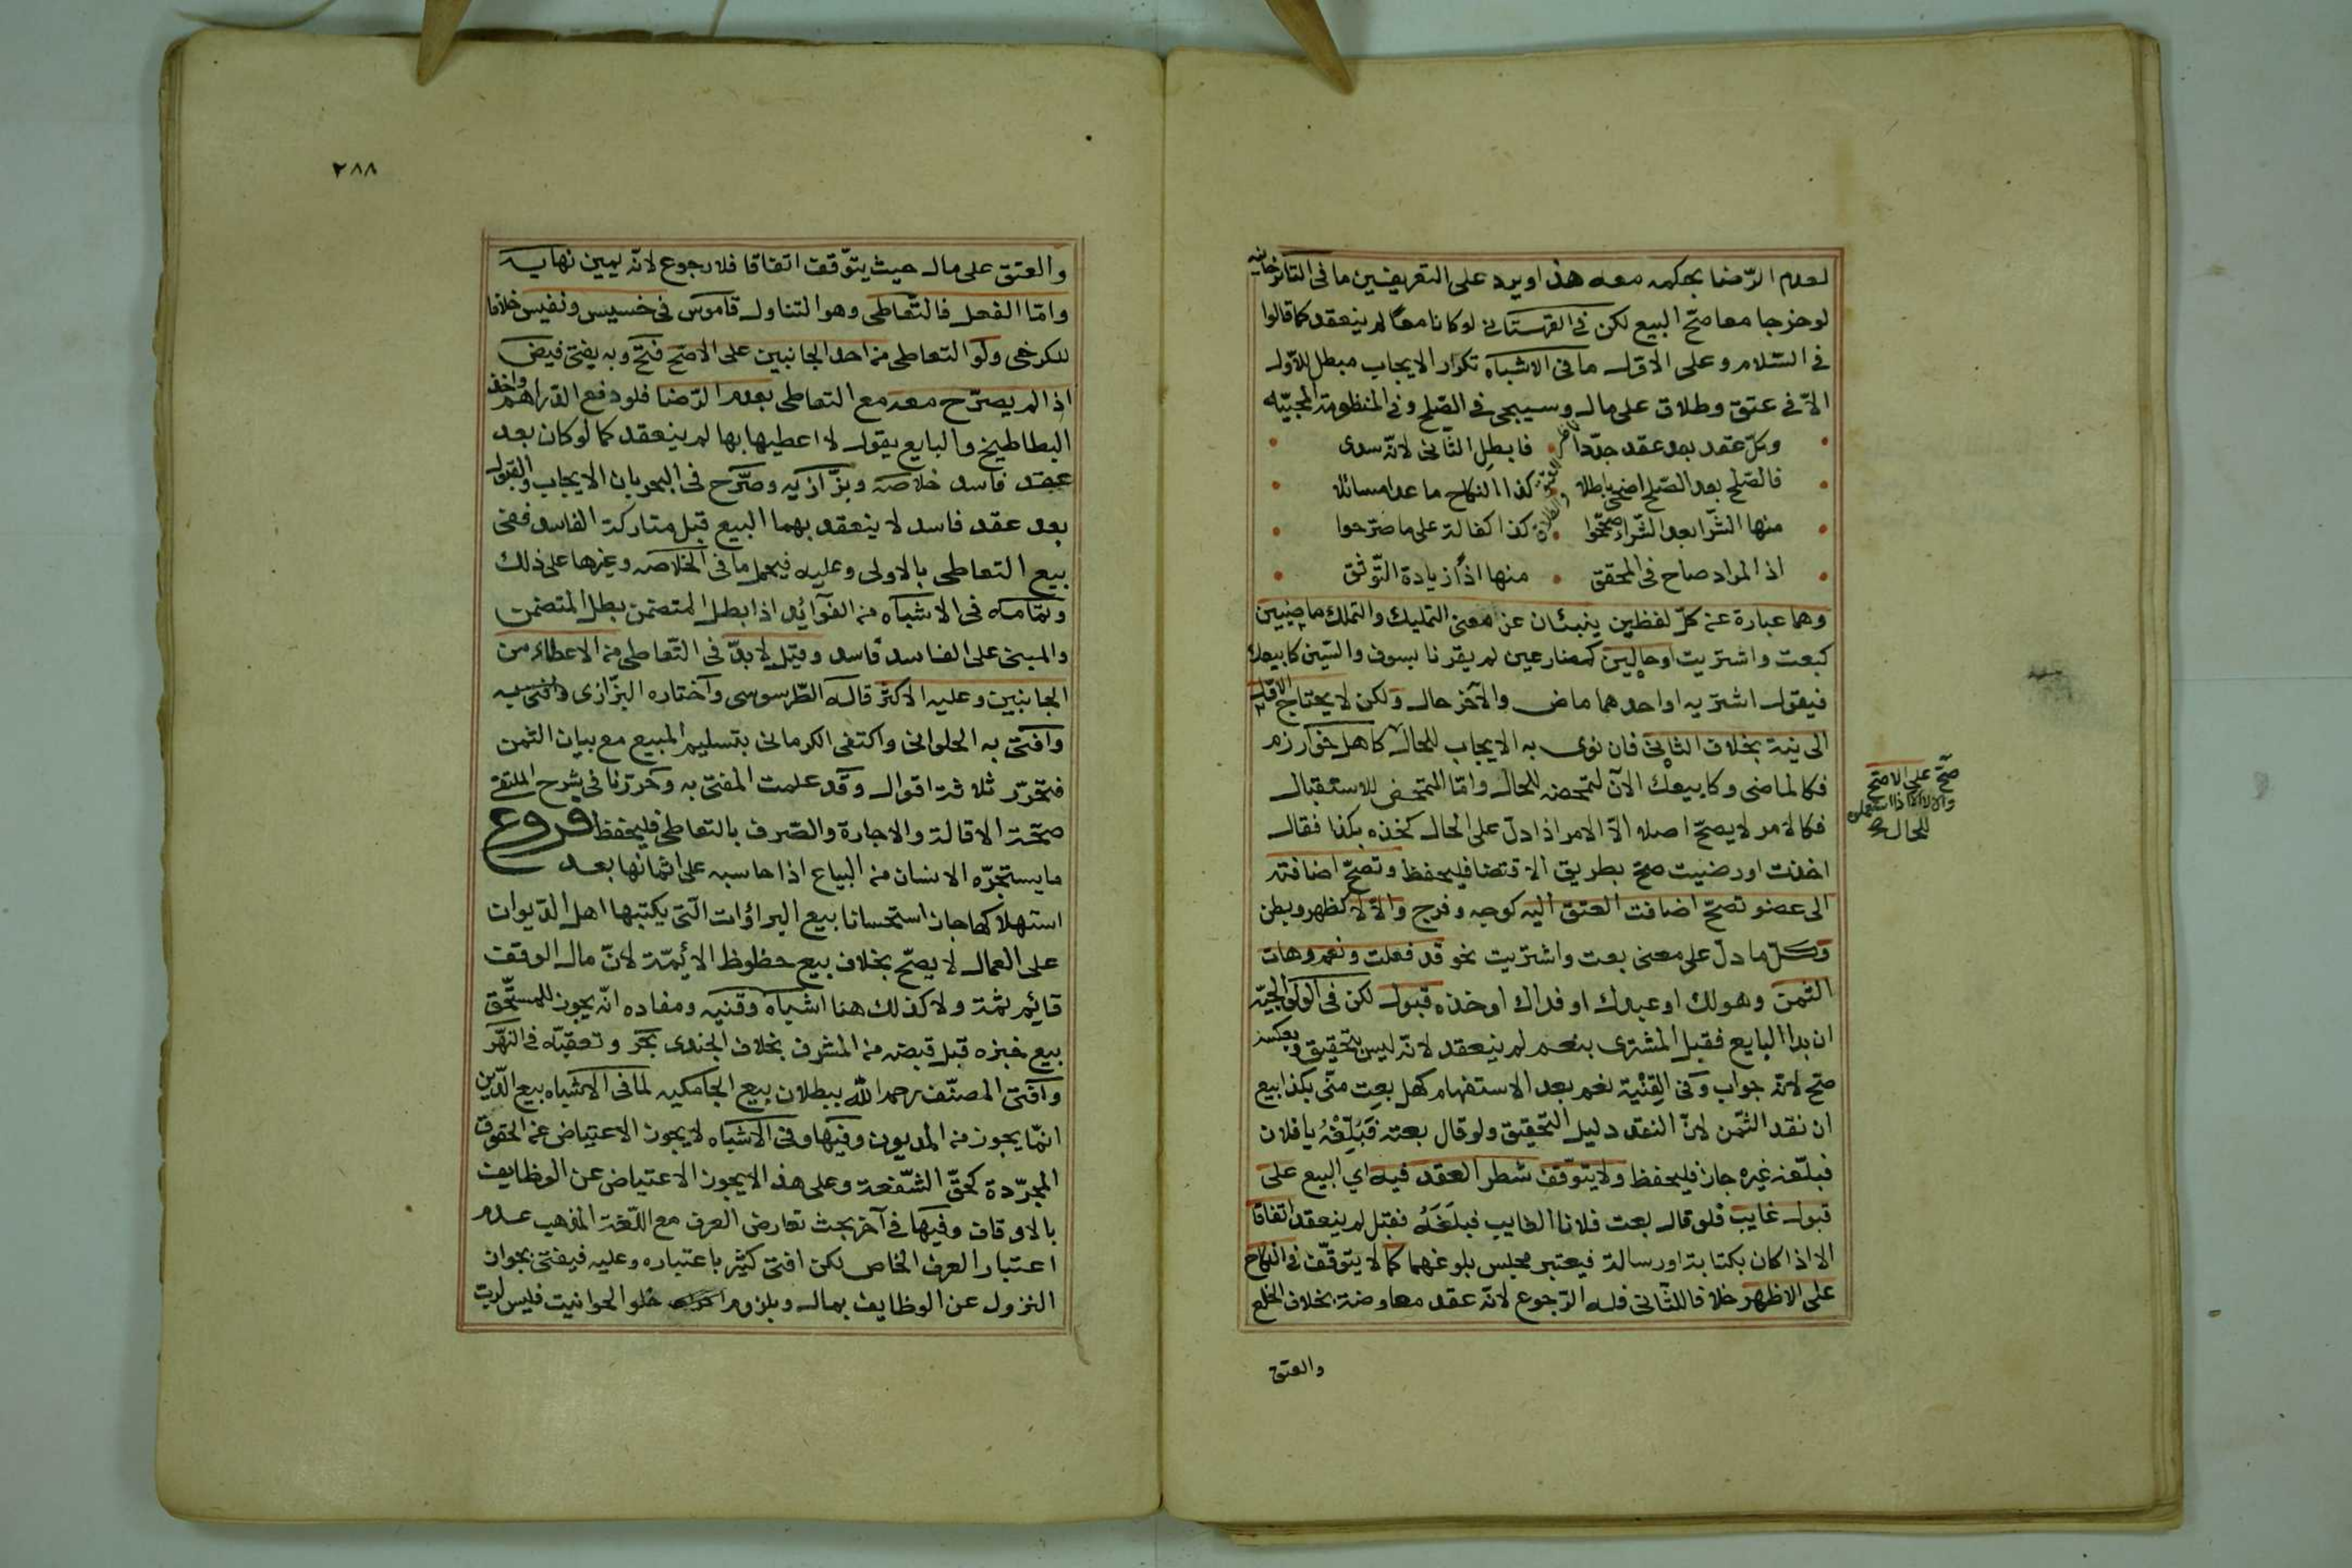 لعدم الرّضا بحكمه معه هذا ويرد على التعريفين ما في التاترخانيه
لو خرجا معا صحّ البيع لكن في القهستاني لو كانا معًا لم ينعقد كما قالوا
في السّلام وعلى الاوّل ما في الاشباه تكرار الايجاب مبطل للاوّل
الاّ في عتق وطلاق على مال وسيجى في الصّلح وفي المنظومة المحبّيه
وكلّ عقد بعد عقد جدّدا فابطل الثّانى لانّه سدى
فالصّلح بعد الصّلح اضحى باطلا كذا النكاح ما عدا مسائلا
منها الشّرا بعد الشّراء صحّحوا كذا كفالة على ما صرّحوا
اذ المراد صاح في المحقق منها اذًا زيادة التّوثق
وهما عبارة عن كلّ لفظين ينبئان عن معنى التمليك والتملك ماضيين
كبعت واشتريت او حالين كمضارعين لم يقرنا بسوف والسّين كابيعك
فيقول اشتريه او احدهما ماض والآخر حال ولكن لا يحتاج الاوّل
الى نية بخلاف الثاني فان نوى به الايجاب للحال كاهل خوارزم
فكالماضى وكابيعك الآن لتمحضه للحال وامّا المتمحض للاستقبال
فكالامر لا يصحّ اصلا الاّ الامر اذا دلّ على الحال كخذه بكذا فقال
اخذت او رضيت صحّ بطريق الاقتضا فليحفظ وتصحّ اضافته
الى عضو تصحّ اضافت العتق اليه كوجه وفرج والاّ لا كظهر وبطن
وكلّ ما دلّ على معنى بعت واشتريت نحو قد فعلت ونعم وهات
الثمن وهو لك او عبدك او فداك او خذه قبول لكن في الولوالجيّه
ان بدا البايع فقبل المشترى بنعم لم ينعقد لانّه ليس بتحقيق وبعكسه
صح لانّه جواب وفى القِنْية نعم بعد الاستفهام كهل بعت منّى بكذا بيع
ان نقد الثّمن لانّ النقد دليل التحقيق ولو قال بعته فَبَلِّغْهُ يا فلان
فبلّغه غيره جاز فليحفظ ولا يتوّقف شطر العقد فيه اي البيع على
قبول غايب فلو قال بعت فلانا الغايب فبلَغَهُ فقبل لم ينعقد اتفاقا
الا اذا كان بكتابة او رسالة فيعتبر مجلس بلوغهما كما لا يتوقّف في النكاح
على الاظهر خلافا للثّانى فله الرّجوع لانّه عقد معاوضة بخلاف الخلع
والعتق
صحّ على الاصّح
والا لا الاّ اذا استعملوه
للحال صح
٢٨٨
والعتق على مال حيث يتوّقف اتفاقا فلا رجوع لانّه يمين نهايه
وامّا الفعل فالتّعاطى وهو التناول قاموس في خسيس ونفيس خلافا
للكرخى ولو التعاطى من احد الجانبين على الاصّح فتح وبه يفتى فيض
اذا لم يصرّح معه مع التعاطى بعدم الرّضا فلو دفع الدّراهم واخذ
البطاطيخ والبايع يقول لا اعطيها بها لم ينعقد كما لو كان بعد
عقد فاسد خلاصة وبزّازيه وصّرح في البحر بان الايجاب والقبول
بعد عقد فاسد لا ينعقد بهما البيع قبل متاركة الفاسد ففى
بيع التعاطى بالاولى وعليه فيحمل ما في الخلاصه وغيرها على ذلك
وتمامه في الاشباه من الفوآئد اذا بطل المتضمن بطل المتضمن
والمبنى على الفاسد فاسد وقيل لا بدّ في التّعاطى من الاعطاء من
الجانبين وعليه الاكثر قاله الطّرسوسى واختاره البزّازى
وافتى به الحلوانى واكتفى الكرمانى بتسليم المبيع مع بيان الثمن
فتحرّر ثلاثة اقوال وقد علمت المفتى به وحرّرنا في شرح الملتقى
صحّة الاقالة والاجارة والصّرف بالتعاطى فليحفظ فروع
ما يستجرّه الانسان من البياع اذا حاسبه على اثمانها بعد
استهلاكها جاز استحسانا بيع البراؤات الّتى يكتبها اهل الدّيوان
على العمال لا يصحّ بخلاف بيع حظوظ الائيمّة لانّ مال الوقف
قائيم ثمّة ولا كذلك هنا اشباه وقنيه ومفاده انّه يجوز للمستّحق
بيع خبزه قبل قبضه من المشرف بخلاف الجندى بحر وتعقبّه في النهر
وافتى المصنّف رحمه الله ببطلان بيع الجامكيه لما في الاشباه بيع الدّين
انمّا يجوز من المديون وفيها وفى الاشباه لا يجوز الاعتياض عن الحقوق
المجرّدة كحقّ الشّفعة وعلى هذا لا يجوز الاعتياض عن الوظايف
بالاوقاف وفيها في آخر بحث تعارض العرف مع اللّغة المذهب عدم
اعتبار العرف الخاص لكن افتى كثير باعتباره وعليه فيفتى بجواز
النزول عن الوظايف بمال وبلزوم خلو الحوانيت فليس لربّ